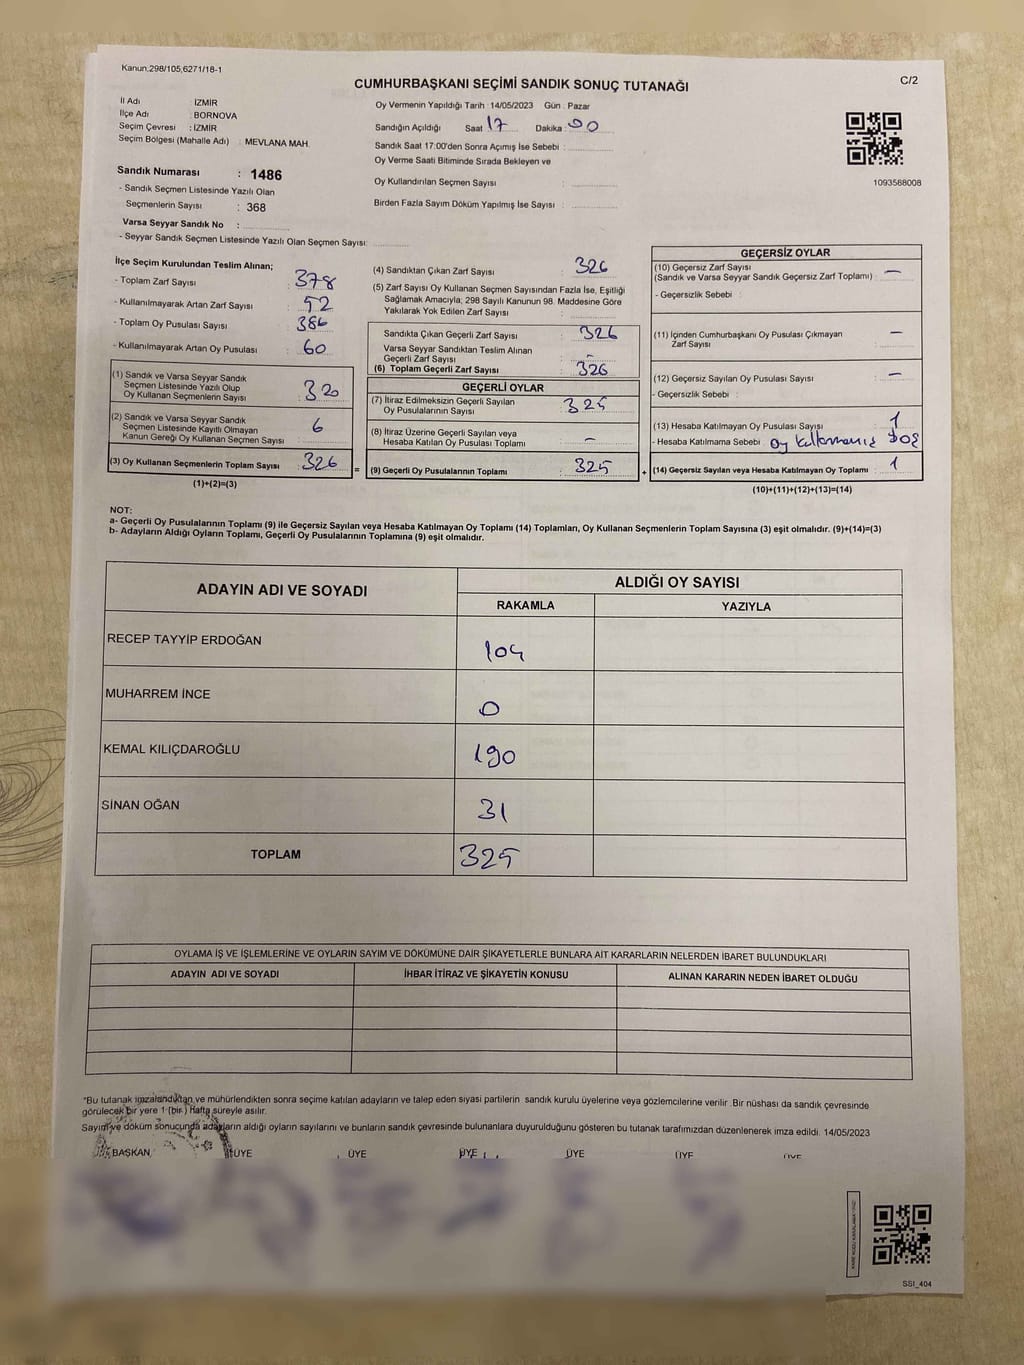 Kanun.298/105,6271/18-1
C/2
CUMHURBAŞKANI SEÇİMİ SANDIK SONUÇ TUTANAĞI
İl Adı İZMİR
İlçe Adı : BORNOVA
Seçim Çevresi : İZMİR
Seçim Bölgesi (Mahalle Adı) : MEVLANA MAH.
Sandık Numarası : 1486
- Sandık Seçmen Listesinde Yazılı Olan
Seçmenlerin Sayısı : 368
Varsa Seyyar Sandık No :
- Seyyar Sandık Seçmen Listesinde Yazılı Olan Seçmen Sayısı:
Oy Vermenin Yapıldığı Tarih : 14/05/2023 Gün : Pazar
Sandığın Açıldığı Saat 17 Dakika : 00
Sandık Saat 17:00'den Sonra Açımış İse Sebebi :
Oy Verme Saati Bitiminde Sırada Bekleyen ve
Oy Kullandırılan Seçmen Sayısı :
Birden Fazla Sayım Döküm Yapılmış İse Sayısı :
1093568008
İlçe Seçim Kurulundan Teslim Alınan;
- Toplam Zarf Sayısı : 378
- Kullanılmayarak Artan Zarf Sayısı : 52
- Toplam Oy Pusulası Sayısı : 386
- Kullanılmayarak Artan Oy Pusulası : 60
(1) Sandık ve Varsa Seyyar Sandık
Seçmen Listesinde Yazılı Olup
Oy Kullanan Seçmenlerin Sayısı : 320
(2) Sandık ve Varsa Seyyar Sandık
Seçmen Listesinde Kayıtlı Olmayan
Kanun Gereği Oy Kullanan Seçmen Sayısı : 6
(3) Oy Kullanan Seçmenlerin Toplam Sayısı : 326
(1)+(2)=(3)
(4) Sandıktan Çıkan Zarf Sayısı : 326
(5) Zarf Sayısı Oy Kullanan Seçmen Sayısından Fazla İse, Eşitliği
Sağlamak Amacıyla, 298 Sayılı Kanunun 98. Maddesine Göre
Yakılarak Yok Edilen Zarf Sayısı :
Sandıkta Çıkan Geçerli Zarf Sayısı : 326
Varsa Seyyar Sandıktan Teslim Alınan
Geçerli Zarf Sayısı : -
(6) Toplam Geçerli Zarf Sayısı : 326
GEÇERLİ OYLAR
(7) İtiraz Edilmeksizin Geçerli Sayılan
Oy Pusulalarının Sayısı : 325
(8) İtiraz Üzerine Geçerli Sayılan veya
Hesaba Katılan Oy Pusulası Toplamı : -
= (9) Geçerli Oy Pusulalarının Toplamı : 325
GEÇERSİZ OYLAR
(10) Geçersiz Zarf Sayısı
(Sandık ve Varsa Seyyar Sandık Geçersiz Zarf Toplamı) : -
- Geçersizlik Sebebi :
(11) İçinden Cumhurbaşkanı Oy Pusulası Çıkmayan
Zarf Sayısı : -
(12) Geçersiz Sayılan Oy Pusulası Sayısı : -
- Geçersizlik Sebebi :
(13) Hesaba Katılmayan Oy Pusulası Sayısı : 1
- Hesaba Katılmama Sebebi
+ (14) Geçersiz Sayılan veya Hesaba Katılmayan Oy Toplamı : 1
(10)+(11)+(12)+(13)=(14)
NOT:
a- Geçerli Oy Pusulalarının Toplamı (9) ile Geçersiz Sayılan veya Hesaba Katılmayan Oy Toplamı (14) Toplamları, Oy Kullanan Seçmenlerin Toplam Sayısına (3) eşit olmalıdır. (9)+(14)=(3)
b- Adayların Aldığı Oyların Toplamı, Geçerli Oy Pusulalarının Toplamına (9) eşit olmalıdır.
ADAYIN ADI VE SOYADI
ALDIĞI OY SAYISI
RAKAMLA YAZIYLA
RECEP TAYYİP ERDOĞAN 104
MUHARREM İNCE 0
KEMAL KILIÇDAROĞLU 190
SİNAN OĞAN 31
TOPLAM 325
OYLAMA İŞ VE İŞLEMLERİNE VE OYLARIN SAYIM VE DÖKÜMÜNE DAİR ŞİKAYETLERLE BUNLARA AİT KARARLARIN NELERDEN İBARET BULUNDUKLARI
ADAYIN ADI VE SOYADI İHBAR İTİRAZ VE ŞİKAYETİN KONUSU ALINAN KARARIN NEDEN İBARET OLDUĞU
"Bu tutanak imzalandıktan ve mühürlendikten sonra seçime katılan adayların ve talep eden siyasi partilerin sandık kurulu üyelerine veya gözlemcilerine verilir .Bir nüshası da sandık çevresinde
görülecek bir yere 1 (bir ) Hafta süreyle asılır.
Sayım ve döküm sonucunda adayların aldığı oyların sayılarını ve bunların sandık çevresinde bulunanlara duyurulduğunu gösteren bu tutanak tarafımızdan düzenlenerek imza edildi. 14/05/2023
BAŞKAN ÜYE ÜYE ÜYE ÜYE ÜYE ÜYE
SSI_404